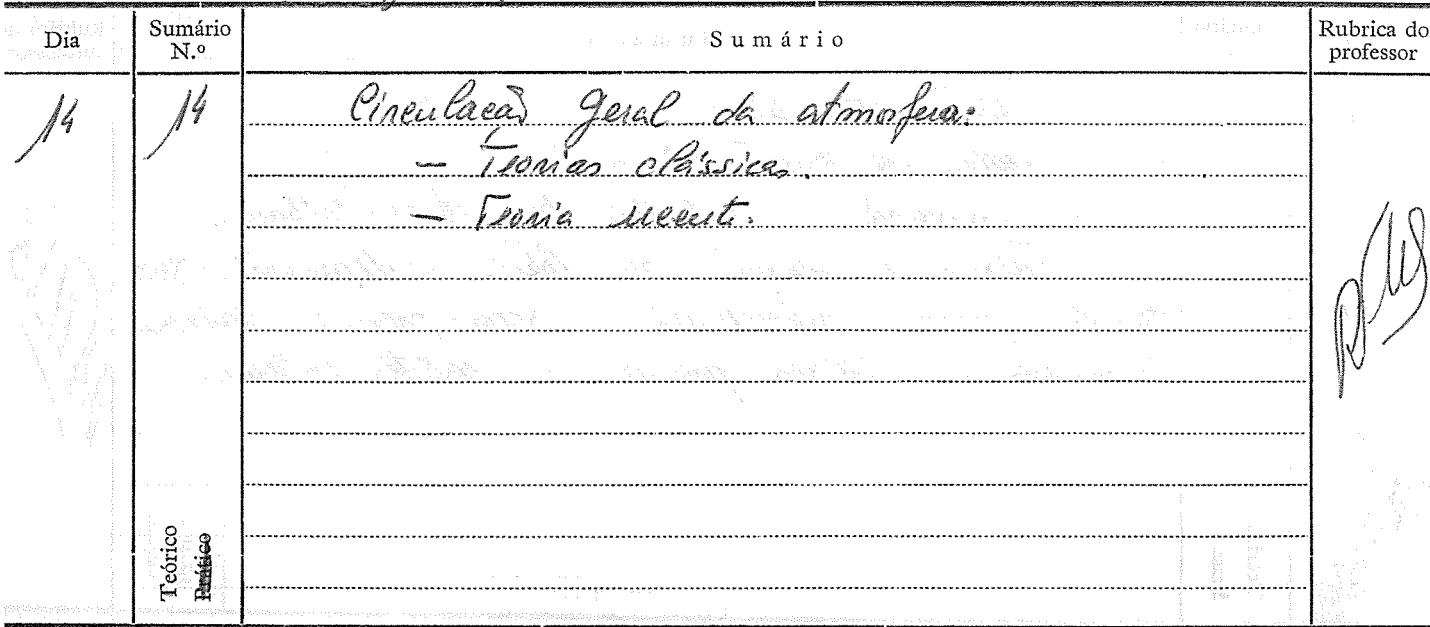 Dia
Sumário
N.º
Sumário
Rubrica do
professor
14
14
Circulação geral da atmosfera:
— Teorias clássicas.
— Teoria recente.
Teórico
Prático